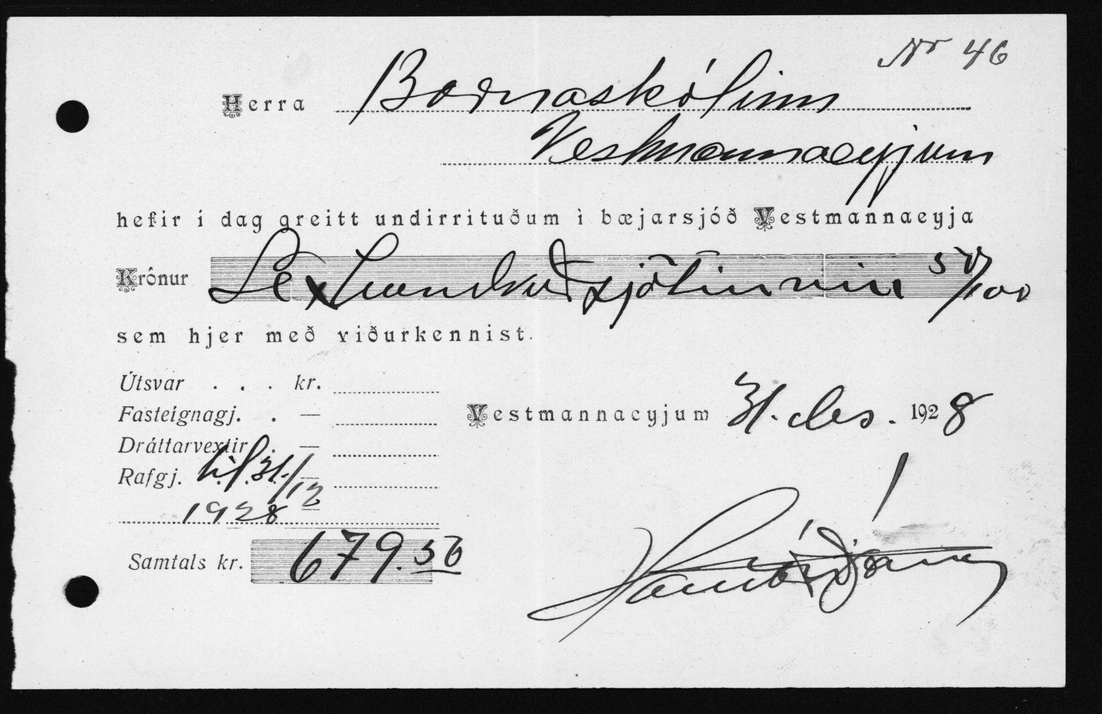 Nr 46
Herra Barnaskólinn
Vestmannaeyjum
hefir í dag greitt undirrituðum í bæjarsjóð Vestmannaeyja
Krónur Sexhundruð sjötíu níu 50/100
sem hjer með viðurkennist.
Útsvar . . . kr.
Fasteignagj. . —
Dráttarvextir . —
Rafgj. til 31/12 —
1928
Samtals kr. 679.50
Vestmannaeyjum 31. des. 1928